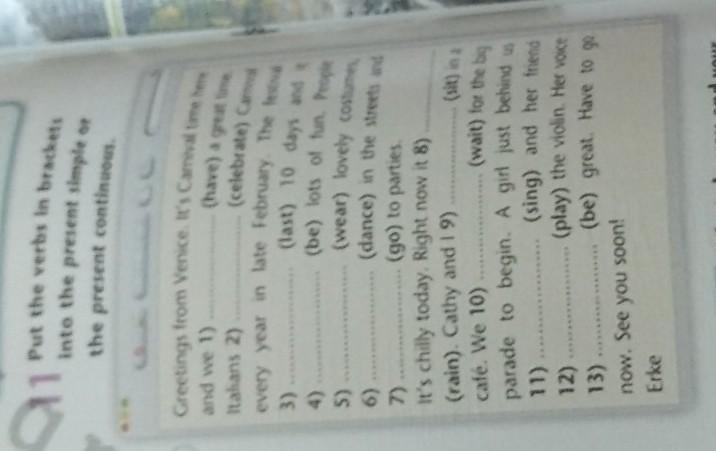 11 Put the verbs in brackets
into the present simple or
the present continuous.
Greetings from Venice. It's Carnival time here
and we 1) .................. (have) a great time.
Italians 2) .................. (celebrate) Carnival
every year in late February. The festival
3) .................. (last) 10 days and it
4) .................. (be) lots of fun. People
5) .................. (wear) lovely costumes,
6) .................. (dance) in the streets and
7) .................. (go) to parties.
It's chilly today. Right now it 8) ..................
(rain). Cathy and I 9) .................. (sit) in a
café. We 10) .................. (wait) for the big
parade to begin. A girl just behind us
11) .................. (sing) and her friend
12) .................. (play) the violin. Her voice
13) .................. (be) great. Have to go
now. See you soon!
Erke